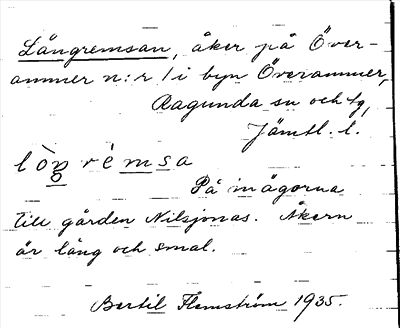 Långremsan, åker på Över-
ammer n:r 1 i byn Överammer,
Ragunda sn och tg,
Jämtl. l.
lòŋ rémsa
På inägorna
till gården Nilsjonas. Åkern
är lång och smal.
Bertil Flemström 1935.